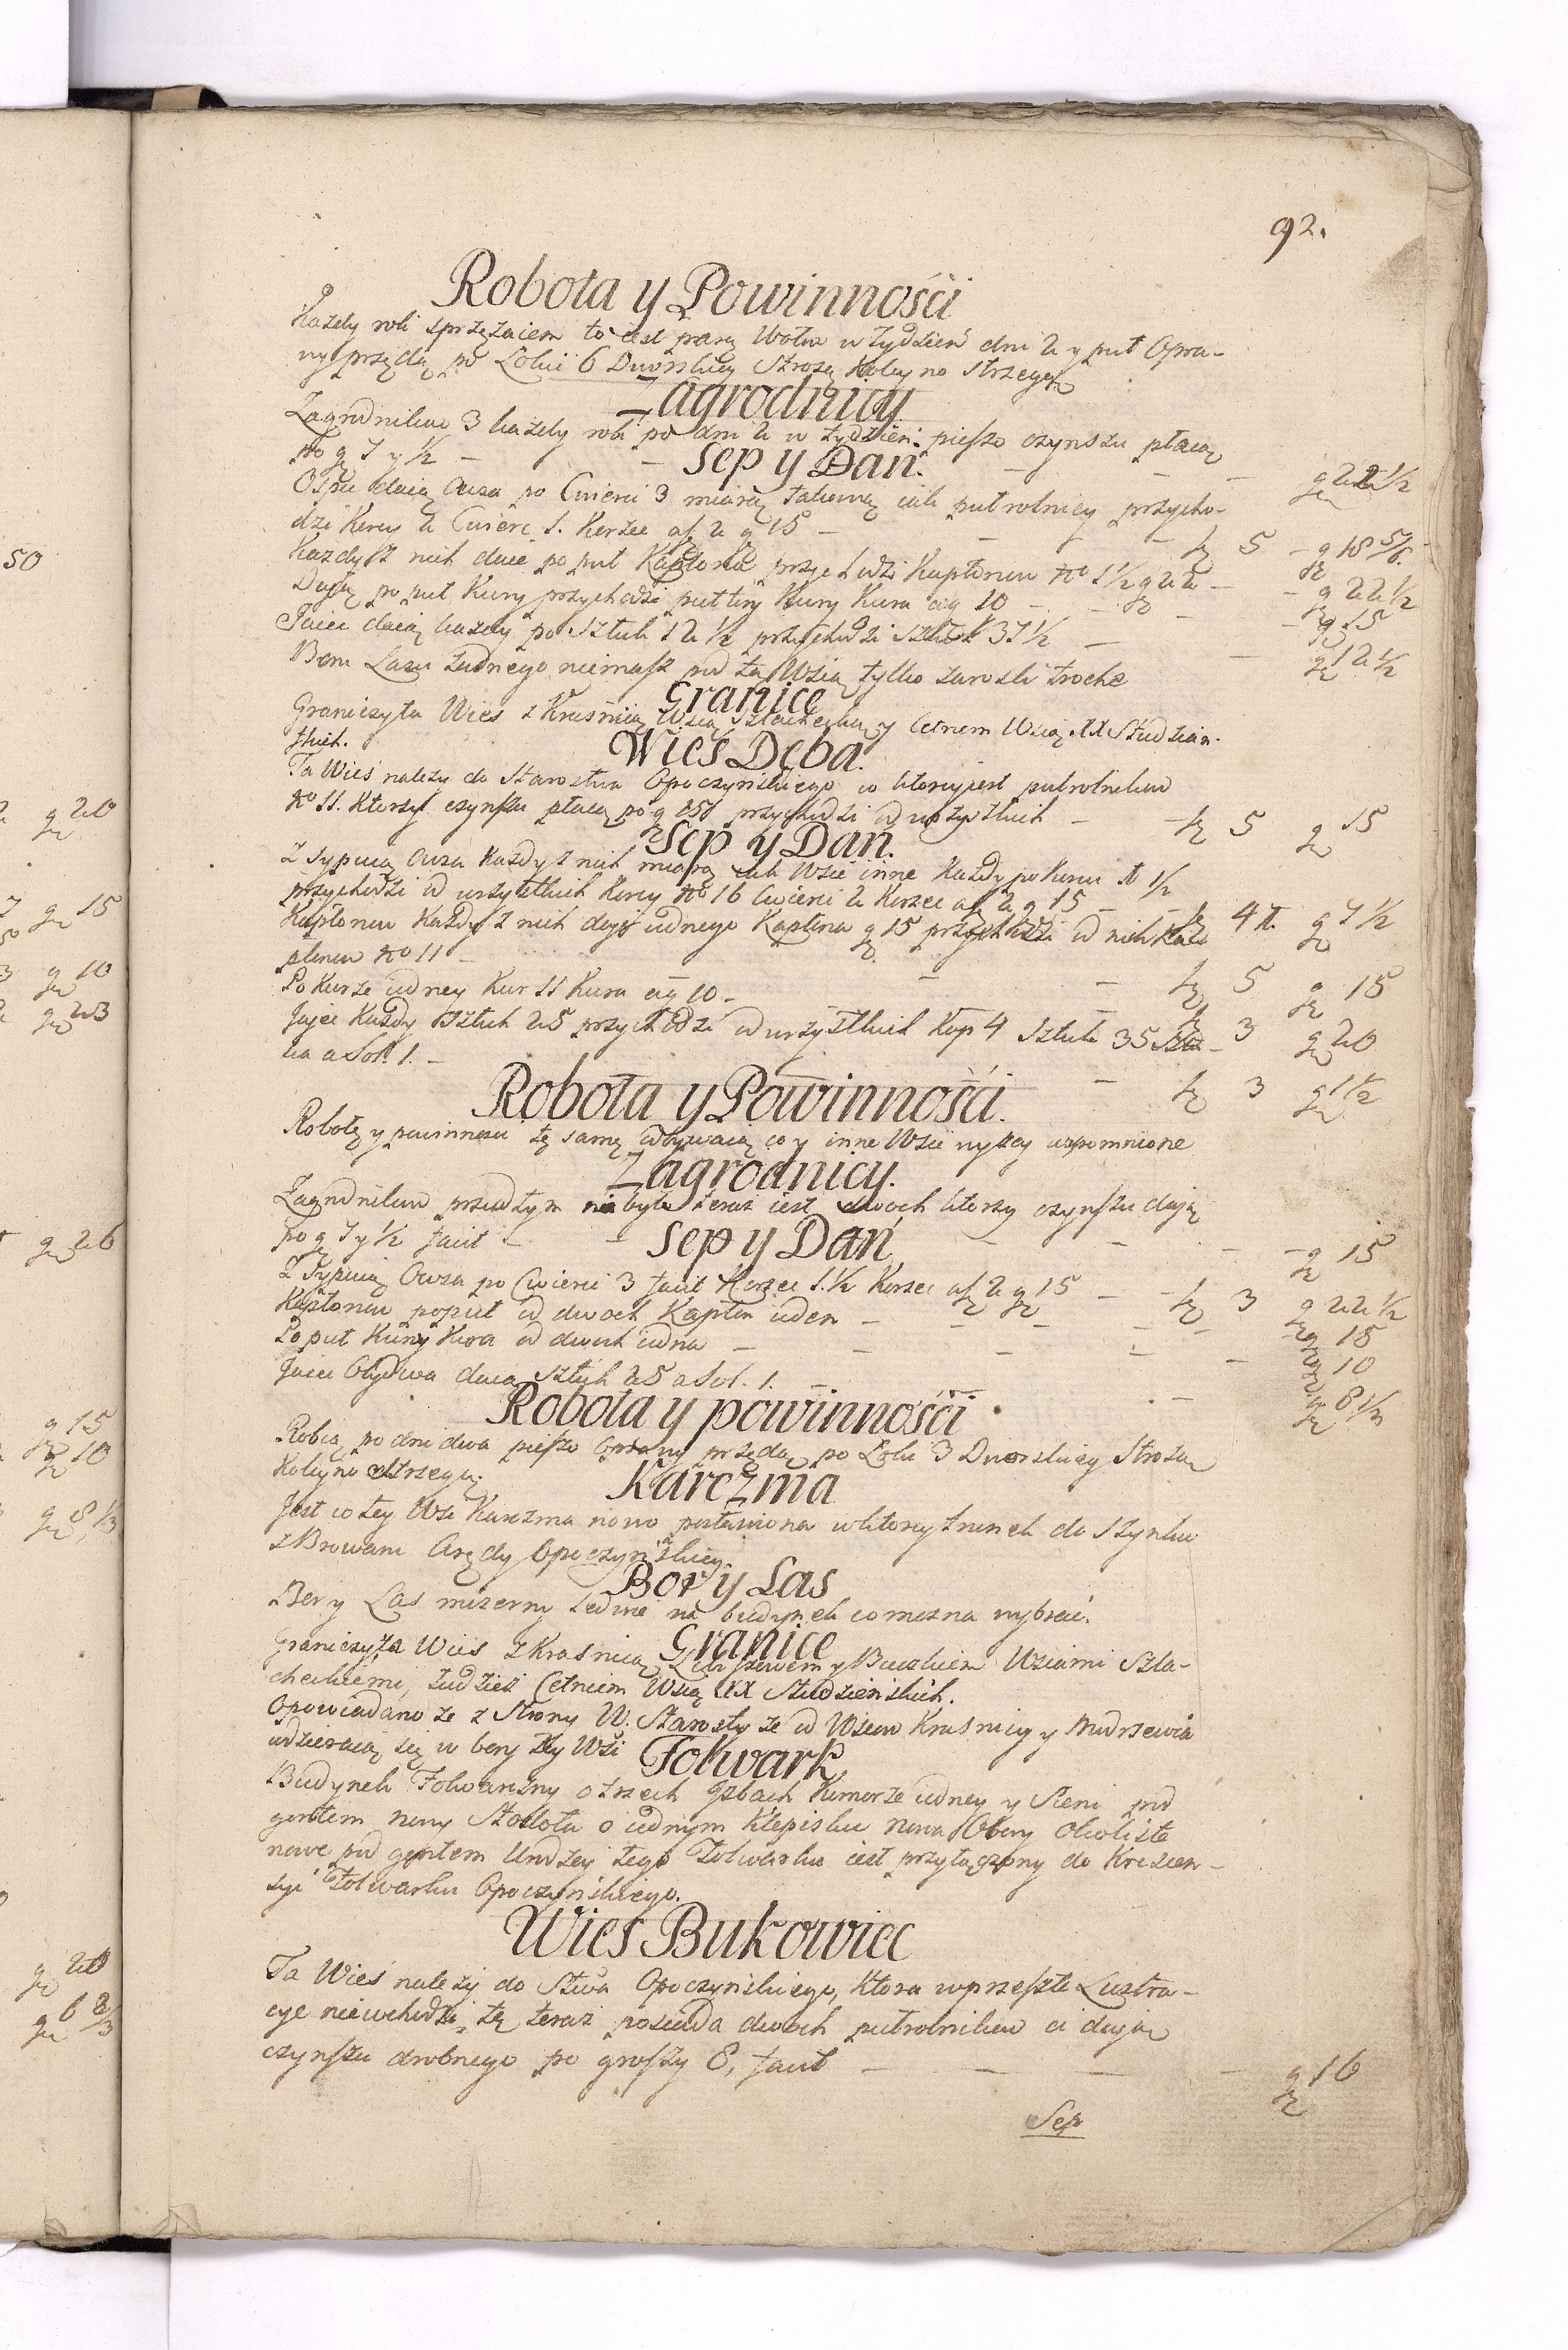 92.
Robota y Powinności
Każdy robi sprzężaiem to iest parą Wołów w tydzień dni 2 y puł Opra-
wy przędą po Łokci 6 Dworskiey Strożą koleyno strzegą
Zagrodnicy
Zagrodników 3 każdy robi po dni 2 w tydzień pieszo czynszu płacą
po g 7 y ½ — — — — — g 22½
Sep y Dań.
Osspu daią Owsa po Cwierci 3 miarą takową iak pułrolnicy przycho-
dzi Korcy 2 Cwierc 1. Korzec a f 2 g 15 — — — f 5 — g 18 5/6.
Każdy z nich daie po puł Kapłona przychodzi Kapłonów No 1½ g 22 — — g 22½
Daią po puł Kury przychodzi pułtiry Kury Kura a g 10 — — — g 15
Jaiec daią każdy po Sztuk 12½ przychodzi Sztuk 37½ — — g 12½
Boru Lasu żadnego niemasz pod tą Wsią tylko zarosli troche
Granice
Graniczy ta Wieś z Krasnicą Wsią Szlachecką y Cetnem Wsią XX Studzian-
skich.
Wieś Dęba.
Ta Wieś należy do Starostwa Opoczyńskiego w ktorey iest pułrolników
No 11. Ktorzy czynszu płacą po g 15 przychodzi od wszystkich — f 5 g 15
Sep y Dań.
Zsypuią Owsa Każdy z nich miarą iak Wsie inne Każdy po Korcu 1 ½
przychodzi od wszystkich Korcy No 16 Cwierci 2 Korzec a f 2 g 15 — — f 41. g 7½
Kapłonow Każdy z nich daie iednego Kapłona g 15 przychodzi od nich Ka-
płonow No 11 — — — f 5 g 15
Po Kurze iedney Kur 11 Kura a g 10 — f 3 g 20
Jajec Każdy Sztuk 25 przychodzi od wszystkich Kop 4 Sztuk 35 Sztu-
ka a Sol. 1. — — f 3 g 1½
Robota y Powinności.
Robotę y powinności tę samę odbywaią co y inne Wsie wyżey wspomnione
Zagrodnicy.
Zagrodników przedtym nie było teraz iest dwoch ktorzy czynszu daią
po g 7 y ½ facit — — — — — g 15
Sep y Dań
Zsypuią Owsa po Cwierci 3 facit Korzec 1.½ Korzec a f 2 g 15 — — f 3 g 22½
Kapłonów po puł od dwoch Kapłon ieden — — — — g 15
Po puł Kury Kura od dwuch iedna — — — — — g 10
Jaiec Obydwa daią Sztuk 25 a Sol. 1. — — g 8 1/3
Robota y powinności
Robią po dni dwa pieszo Oprawy przędą po Łokci 3 Dworskiey Strożą
Koleyno Strzegą.
Karczma
Jest w tey Wsi Karczma nowo postawiona w ktorey trunek do szynku
z Browaru Arędy Opoczyńskiey.
Bor y Las
Bor y Las mizerny ledwie na budynek co można wybrać.
Granice
Graniczy ta Wieś z Krasnicą y Buczkiem Wsiami Szla-
checkiemi, tudzież Cetniem Wsią XX Studzieńskich.
Opowiadano że z Strony W. Starosty że od Wsiow Krasnicy y Mudrzewia
wdzieraią się w bory tey Wsi
Folwark
Budynek Folwarczny o trzech Jzbach Komorze iedney y Sieni pod
gontem nowy Stodoła o iednym Klepisku nowa Obory Okoliste
nowe pod gontem Urodzay tego Folwarku iest przyłączony do Kresceń-
syi Folwarku Opoczyńskiego.
Wieś Bukowiec
Ta Wieś należy do Stwa Opoczyńskiego, Ktora w przeszłe Lustra-
cye niewchodzi, tę teraz posiada dwoch pułrolników ci daią
czynszu drobnego po groszy 8, facit — — — — g 16
Sep
50
g 20
g 15
g 10
g 23
g 26
g 15
g 10
g 8 1/3
g 20
g 6 2/3